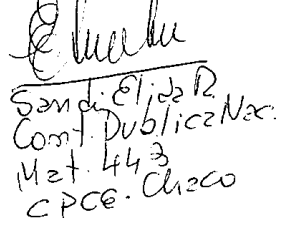 Sandi, Elida R.
Cont. Publica Nac.
Mat. 443
CPCE. Chaco